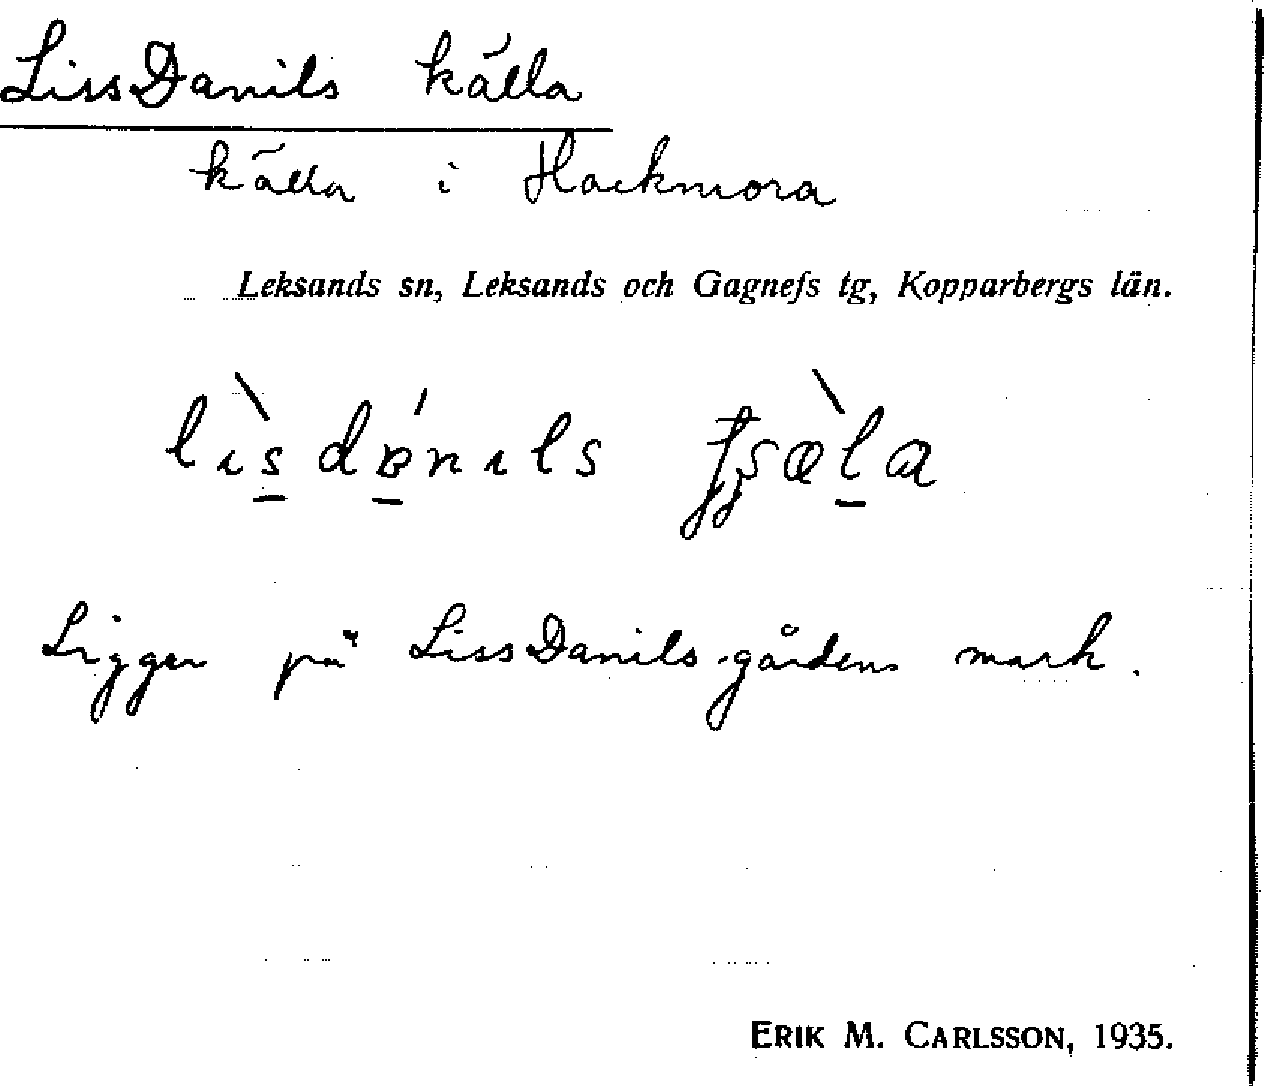 LissDanils källa
källa i Hackmora
Leksands sn, Leksands och Gagnefs tg, Kopparbergs län.
Ligger på LissDanils-gårdens mark.
ERIK M. CARLSSON, 1935.